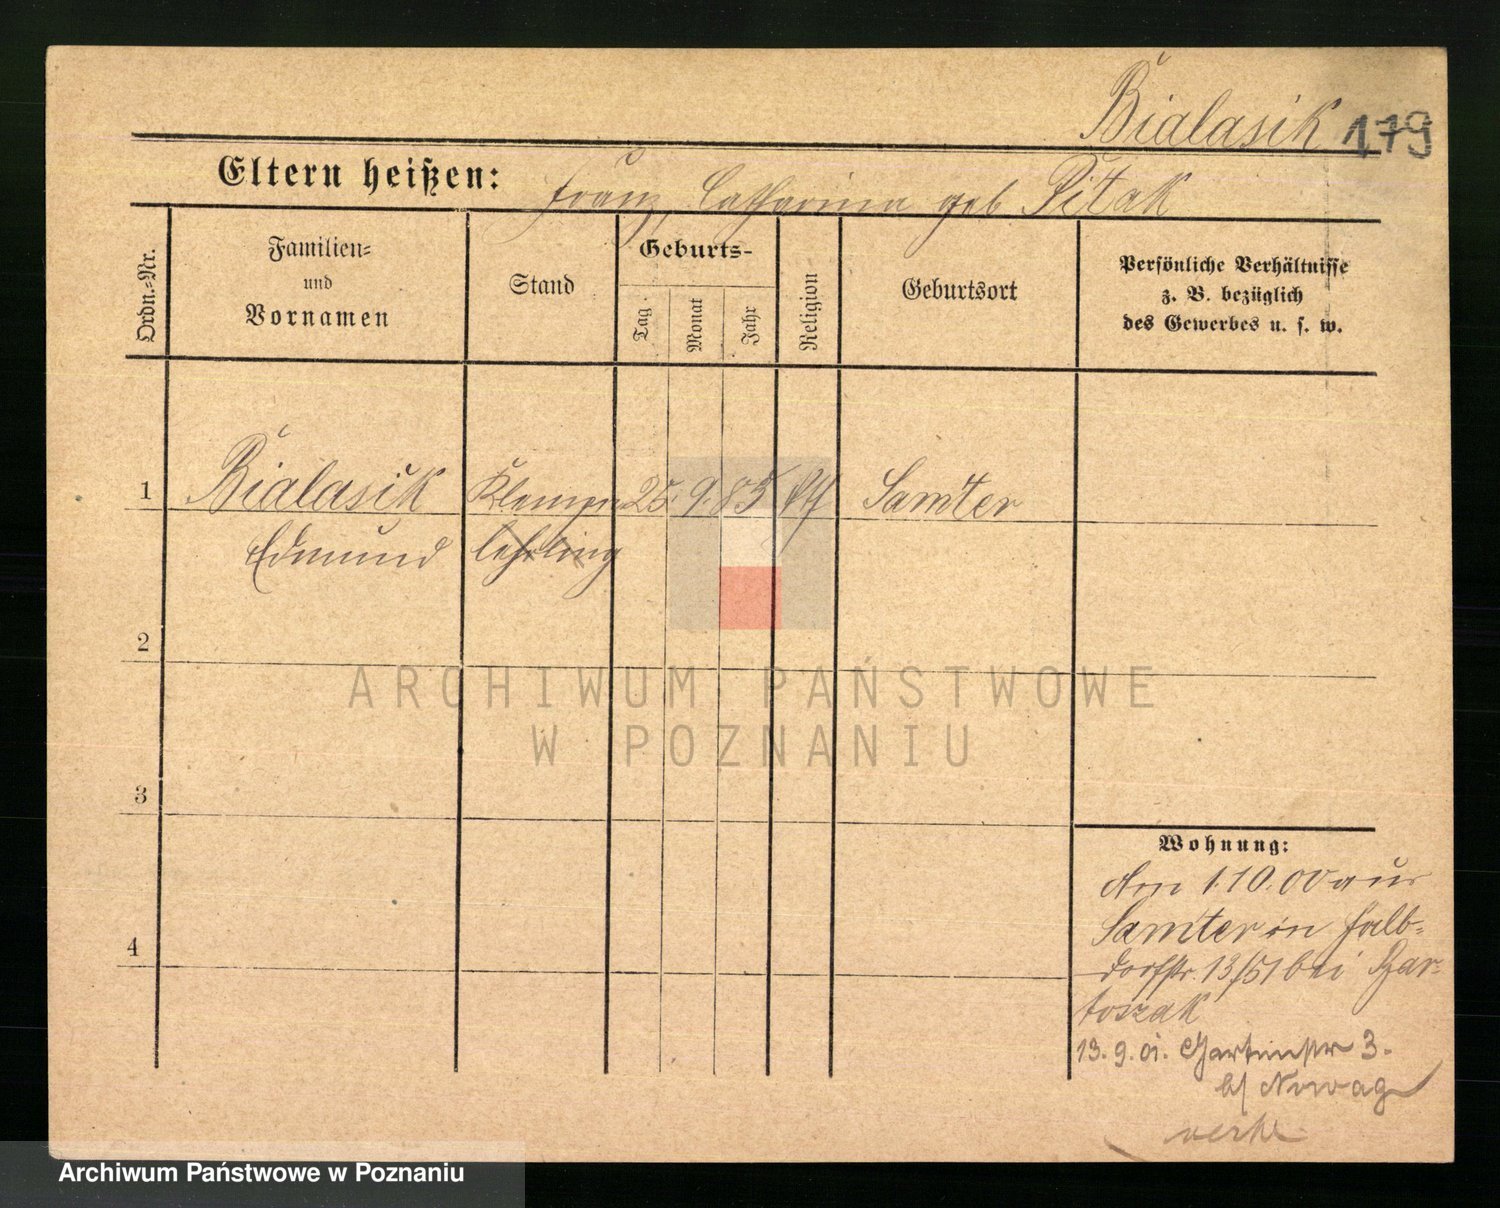 Bialasik 179
Eltern heißen: Franz, Catharina geb Pitak
Ordn.=Nr.
Familien=
und
Vornamen
Stand
Geburts-
Tag
Monat
Jahr
Religion
Geburtsort
Persönliche Verhältnisse
z. B. bezüglich
des Gewerbes u. s. w.
1 Bialasik Klempner 25. 9. 85 Samter
Edmund lehrling
2
3
4
Wohnung:
Am 1.10.00 aus
Samter in Halb-
dorfstr. 13/51 bei Bar-
toszak
13.9.01. Gartenstr 3.
b/ Nowag
ARCHIWUM PAŃSTWOWE
W POZNANIU
Archiwum Państwowe w Poznaniu